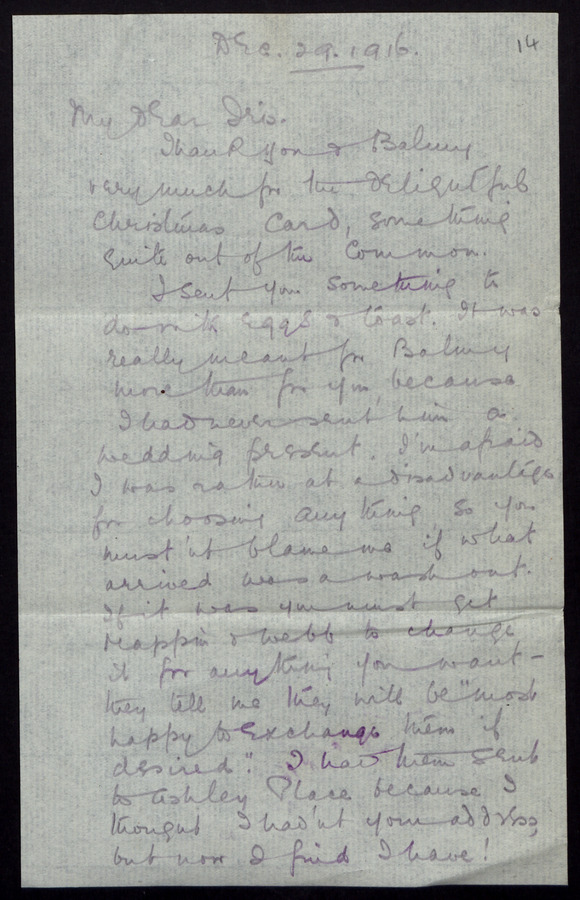 Dec. 29. 1916.
14
My Dear Iris.
Thank you & Balmy
very much for the delightful
Christmas Card, something
quite out of the common.
I sent you something to
do with eggs & toast. It was
really meant for Balmy
more than for you, because
I had never sent him a
wedding present. I'm afraid
I was rather at a disadvantage
for choosing anything so you
must'nt blame me if what
arrived was a wash out.
If it was you must get
Mappin & Webb to change
it for anything you want -
they tell me they will be "most
happy to exchange them if
desired". I had them sent
to Ashley Place because I
thought I had'nt your address,
but now I find I have!